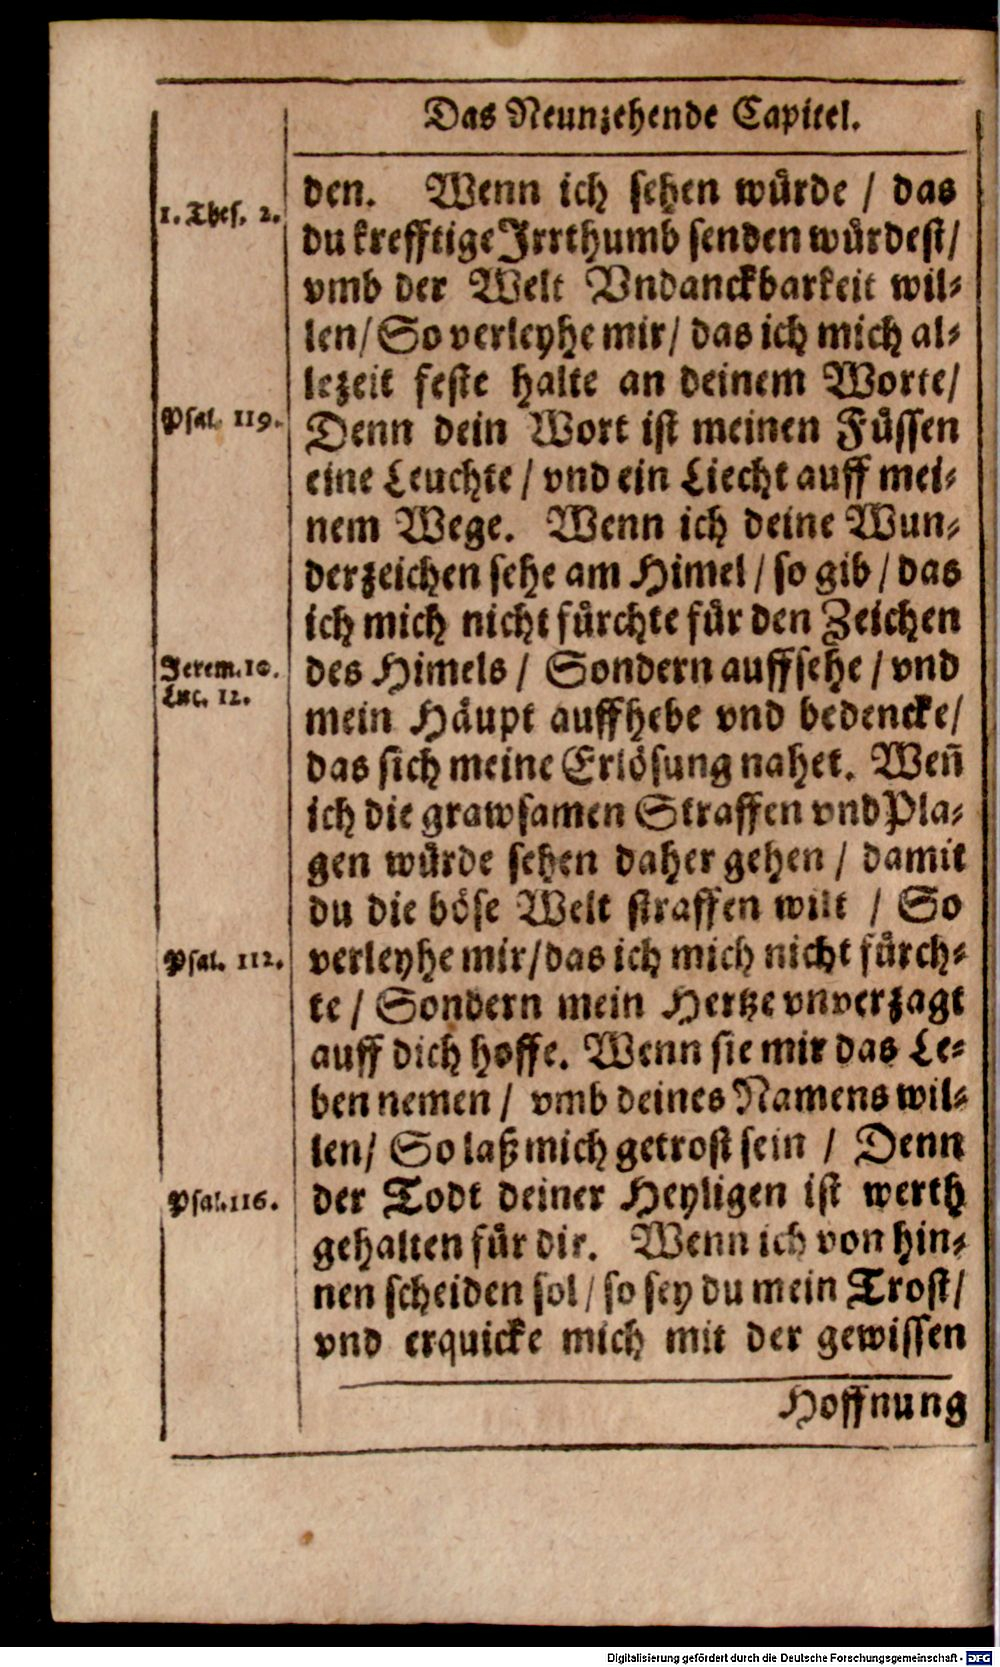 Das Neunzehende Capitel.
den. Wenn ich sehen wůrde / das
1. Thes. 2.
du krefftige Irrthumb senden wůrdest/
vmb der Welt Vndanckbarkeit wil-
len/ So verleyhe mir/ das ich mich al-
lezeit feste halte an deinem Worte/
Psal. 119.
Denn dein Wort ist meinen Fůssen
eine Leuchte / vnd ein Liecht auff mei-
nem Wege. Wenn ich deine Wun-
derzeichen sehe am Himel / so gib / das
ich mich nicht fůrchte fůr den Zeichen
Jerem. 10.
des Himels / Sondern auffsehe / vnd
Luc. 12.
mein Häupt auffhebe vnd bedencke/
das sich meine Erlösung nahet. Weñ
ich die grawsamen Straffen vnd Pla-
gen wůrde sehen daher gehen / damit
du die böse Welt straffen wilt / So
Psal. 112.
verleyhe mir/das ich mich nicht fůrch-
te / Sondern mein Hertze vnverzagt
auff dich hoffe. Wenn sie mir das Le-
ben nemen / vmb deines Namens wil-
len/ So laß mich getrost sein / Denn
Psal. 116.
der Todt deiner Heyligen ist werth
gehalten fůr dir. Wenn ich von hin-
nen scheiden sol / so sey du mein Trost/
vnd erquicke mich mit der gewissen
Hoffnung
Digitalisierung gefördert durch die Deutsche Forschungsgemeinschaft - DFG